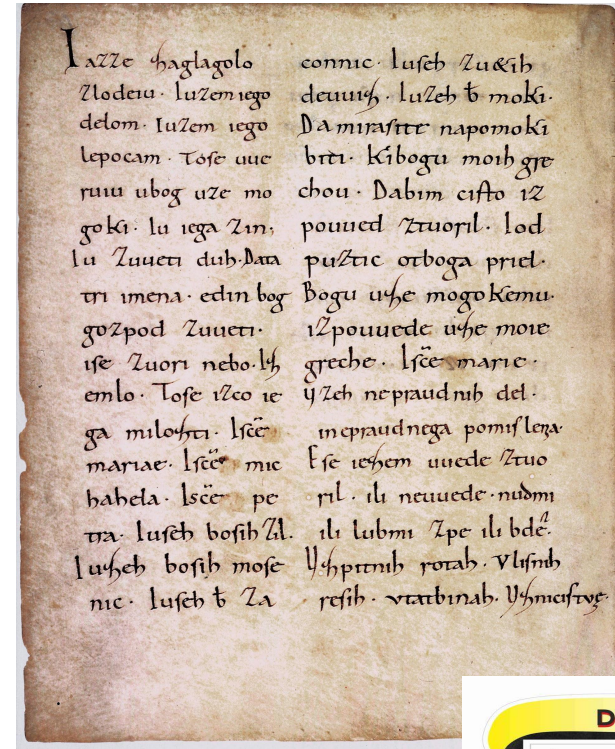 Iazze zaglagolo
zlodeiu. Iuzem iego
delom. Iuzem iego
lepocam. Tose uue
ruiu ubog uze mo
goki. Iu iega zin,
Iu zuueti duh. Data
tri imena. edin bog
gozpod zuueti.
ise zuori nebo. Isħ
emlo. Tose izco ie
ga milozti. Isc̄e
mariae. Isc̄e mic
hahela. Isc̄e pe
tra. Iuseh bosih zil.
Iuzeh bosih mose
nic. Iuseh b̄ za
connic. Iuseh zu&ih
deuuiz. Iuzeh b̄ moki.
Da mirasite napomoki
bīti. Kibogu moih gre
chou. Dabim cisto iz
pouued ztuoril. Iod
puztic otboga priel.
Bogu uze mogokemu.
izpouuede uze moie
greche. Isc̄e marie.
Uzeh nepraudnih del.
inepraudnega pomislera.
Ese iezem uuede ztuo
ril. ili neuuede. nudmi
ili lubmi zpe ili bde.
Uzpitnih rotah. Vlisnih
resih. vtatbinah. Uznicistue.
D